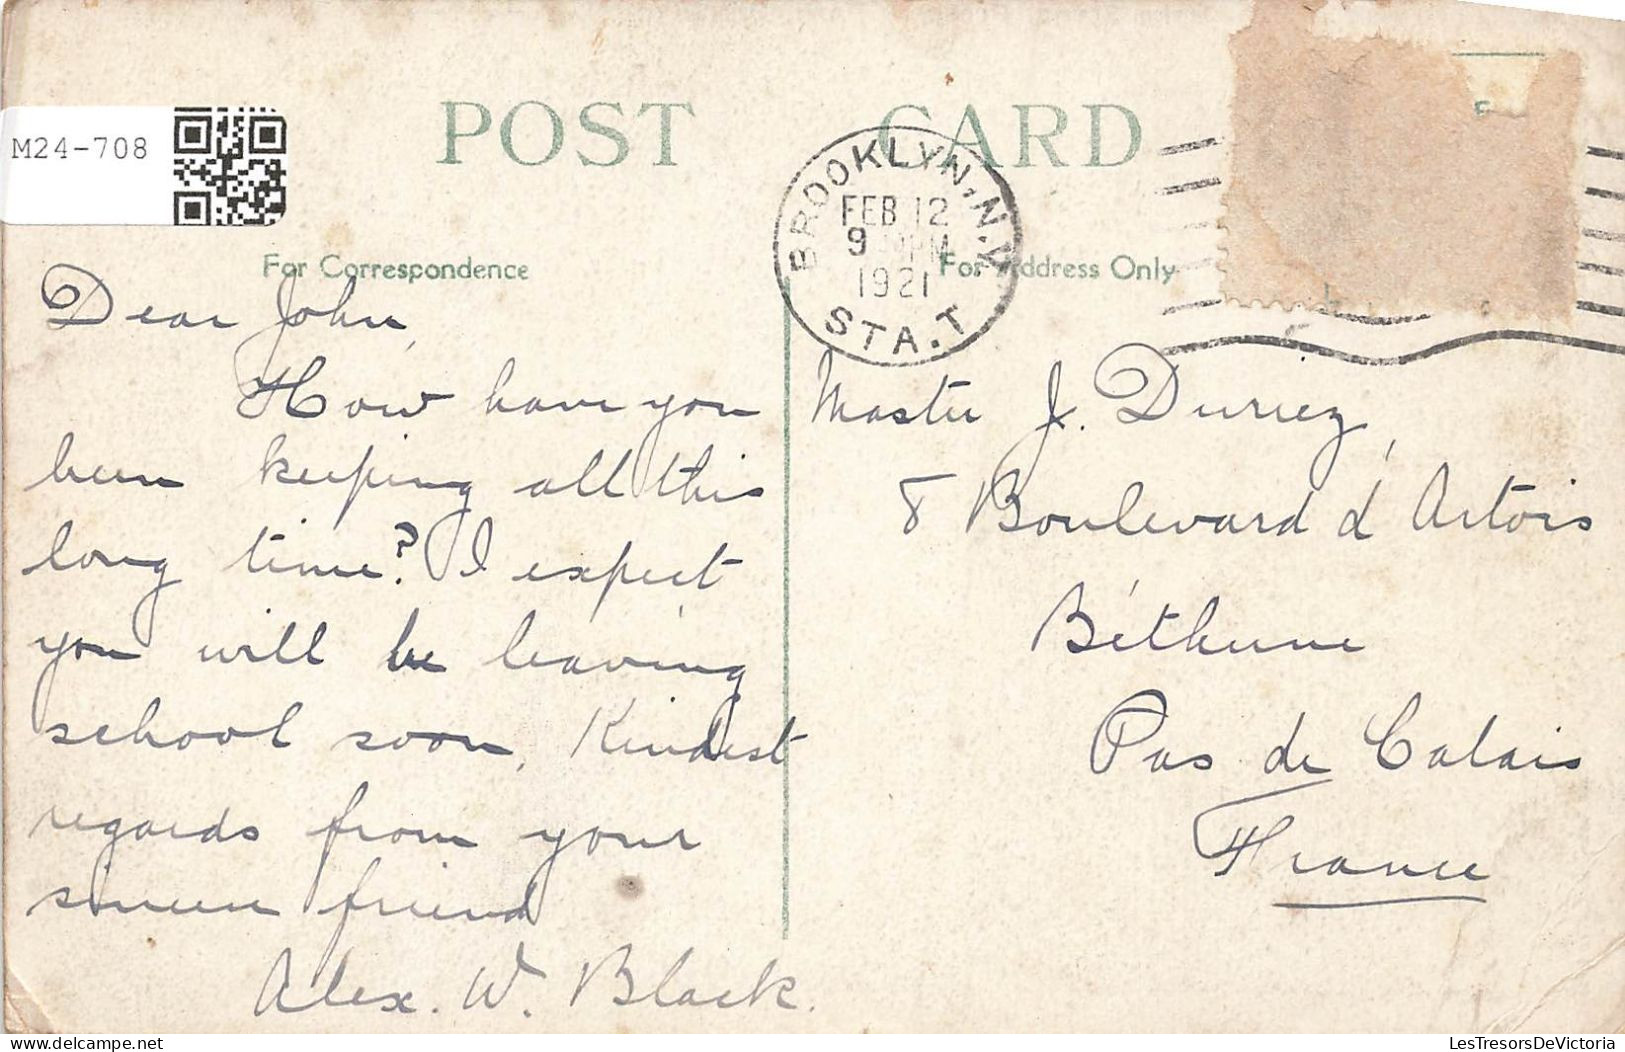 M24-708
POST CARD
BROOKLYN, N.Y.
FEB 12
9 30PM
1921
STA. T
For Correspondence
For Address Only
Dear John,
How have you
been keeping all this
long time? I expect
you will be leaving
school soon. Kindest
regards from your
sincere friend
Alex. W. Black.
Master J. Duriez,
8 Boulevard d'Artois
Béthune
Pas de Calais
France
delcampe.net
LesTresorsDeVictoria